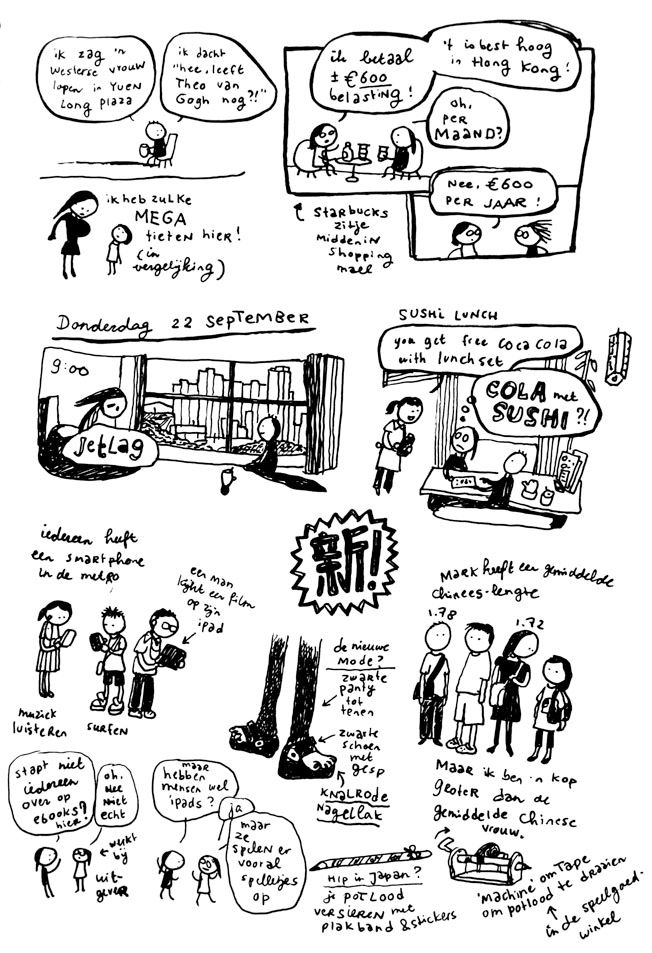 ik zag 'n
westerse vrouw
lopen in Yuen
Long Plaza
ik dacht
"hee, leeft
Theo van
Gogh nog?!"
ik betaal
± €600
belasting!
't is best hoog
in Hong Kong!
oh,
PER
MAAND?
Nee, €600
PER JAAR!
ik heb zulke
MEGA
tieten hier!
(in
vergelijking)
STARBUCKS
zitje
midden in
shopping
mall
Donderdag 22 September
9:00
Jetlag
SUSHI LUNCH
you get free coca cola
with lunchset
COLA met
SUSHI?!
iedereen heeft
een smartphone
in de metro
een man
kijkt een film
op zijn
ipad
muziek
luisteren
surfen
新!
Mark heeft een gemiddelde
Chinees-lengte
1.78
1.72
Maar ik ben 'n kop
groter dan de
gemiddelde Chinese
vrouw.
de nieuwe
mode?
zwarte
panty
tot
tenen
zwarte
schoen
met
gesp
KNALRODE
Nagellak
stapt niet
iedereen
over op
ebooks?
hier?
oh,
Nee
Niet
echt
werkt
bij
uit-
gever
maar
hebben
mensen wel
ipads?
ja
maar
ze
spelen er
vooral
spelletjes
op
Hip in Japan?
je potlood
versieren met
plakband & stickers
'machine' om tape
om potlood te draaien
in de speelgoed-
winkel